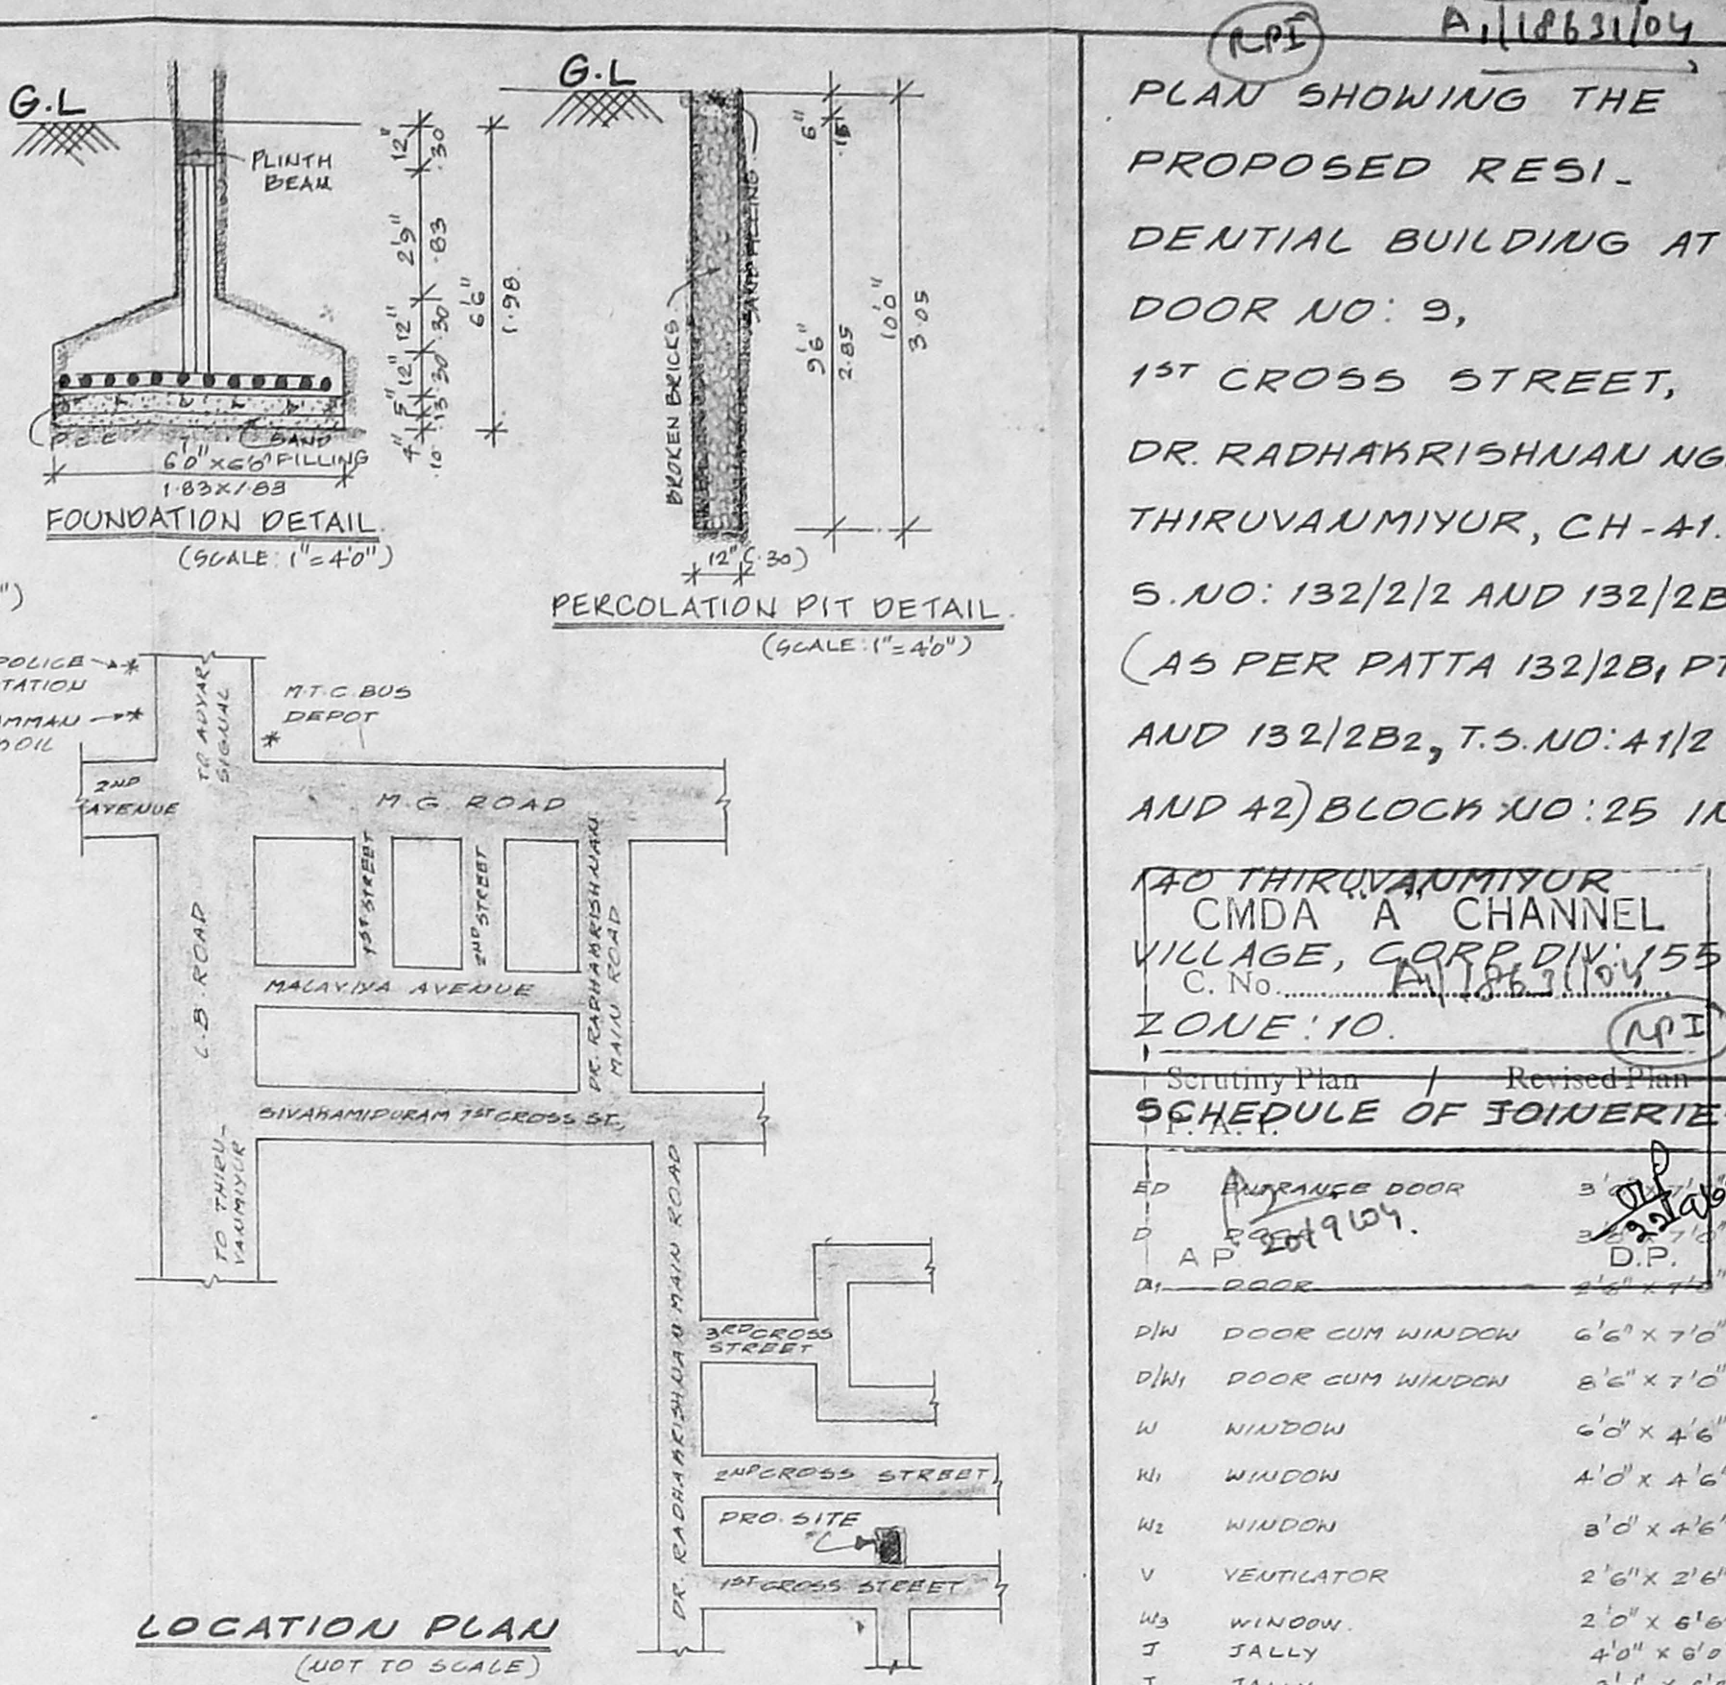 A1/18631/04
RPI
G.L
PLINTH
BEAM
12"
.30
2'9"
.83
12"
.30
12"
.30
5"
.13
4"
.10
6'6"
1.98
P.C.C
SAND
FILLING
6'0"X6'0"
1.83X1.83
FOUNDATION DETAIL
(SCALE: 1"=4'0")
G.L
BROKEN BRICKS
SAND FILLING
6"
.15
9'6"
2.85
10'0"
3.05
12" (.30)
PERCOLATION PIT DETAIL
(SCALE: 1"=4'0")
")
POLICE
TATION
MMAN
OIL
TO ADYAR
SIGNAL
M.T.C. BUS
DEPOT
2ND
AVENUE
M.G. ROAD
1ST STREET
2ND STREET
DR. RADHAKRISHNAN
MAIN ROAD
L.B. ROAD
MALAVIYA AVENUE
SIVAKAMIPURAM 1ST CROSS ST,
TO THIRU-
VANMIYUR
DR. RADHAKRISHNAN MAIN ROAD
3RD CROSS
STREET
2ND CROSS STREET
PRO. SITE
1ST CROSS STREET
LOCATION PLAN
(NOT TO SCALE)
PLAN SHOWING THE
PROPOSED RESI-
DENTIAL BUILDING AT
DOOR NO: 9,
1ST CROSS STREET,
DR. RADHAKRISHNAN NG
THIRUVANMIYUR, CH-41.
S.NO: 132/2/2 AND 132/2B
(AS PER PATTA 132/2B1 PT
AND 132/2B2, T.S.NO: 41/2
AND 42) BLOCK NO: 25 IN
140 THIRUVANMIYUR
CMDA "A" CHANNEL
VILLAGE, CORP. DIV: 155
C. No. A1/18631/04
ZONE: 10.
RPI
Scrutiny Plan / Revised Plan
SCHEDULE OF JOINERIE
P.A.I.
ED ENTRANCE DOOR
D DOOR
20/9/04.
A P
D.P.
D1 DOOR 2'6" X 7'0"
D/W DOOR CUM WINDOW 6'6" X 7'0"
D/W1 DOOR CUM WINDOW 8'6" X 7'0"
W WINDOW 6'0" X 4'6"
W1 WINDOW 4'0" X 4'6"
W2 WINDOW 3'0" X 4'6"
V VENTILATOR 2'6" X 2'6"
W3 WINDOW. 2'0" X 6'6
J JALLY 4'0" X 6'0